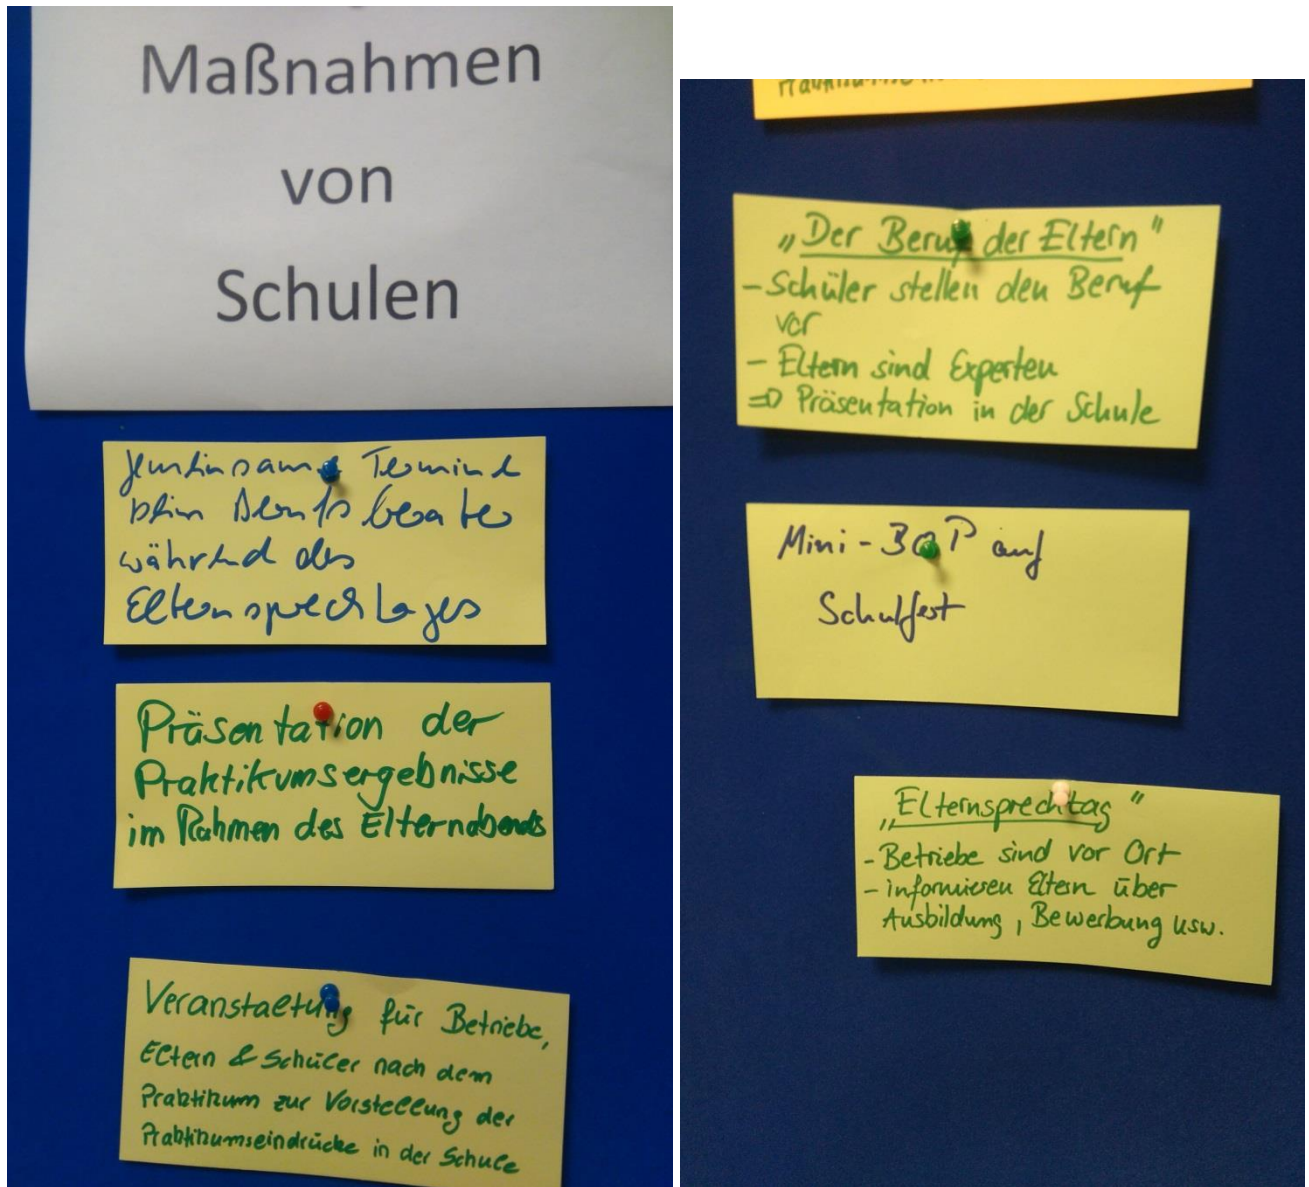 Maßnahmen
von
Schulen
gemeinsame Termine
beim Berufsberater
während des
Elternsprechtages
Präsentation der
Praktikumsergebnisse
im Rahmen des Elternabends
Veranstaltung für Betriebe,
Eltern & Schüler nach dem
Praktikum zur Vorstellung der
Praktikumseindrücke in der Schule
„Der Beruf der Eltern"
- Schüler stellen den Beruf
vor
- Eltern sind Experten
⇒ Präsentation in der Schule
Mini-BOP auf
Schulfest
„Elternsprechtag"
- Betriebe sind vor Ort
- informieren Eltern über
Ausbildung, Bewerbung usw.